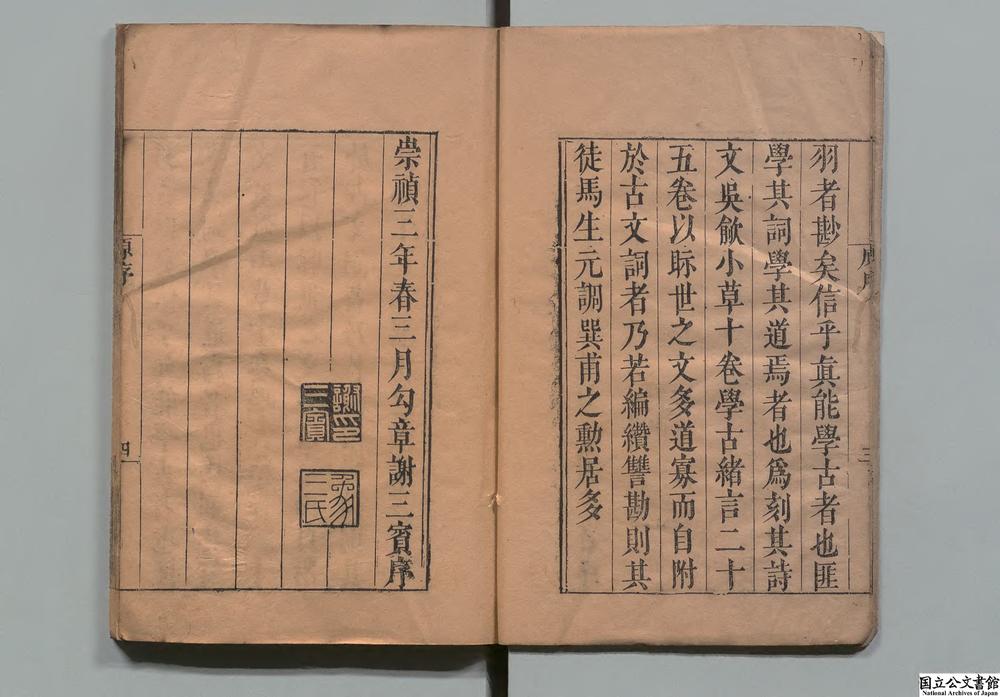 羽者尠矣信乎眞能學古者也匪
學其詞學其道焉者也爲刻其詩
文吳歈小草十卷學古緒言二十
五卷以眎世之文多道寡而自附
於古文詞者乃若編纘讐勘則其
徒馬生元調巽甫之勲居多
三
崇禎三年春三月勾章謝三賓序
謝三賓印
三氏
四
国立公文書館
National Archives of Japan